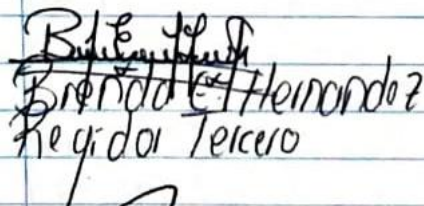 Brenda E. Hernandez
Regidor Tercero